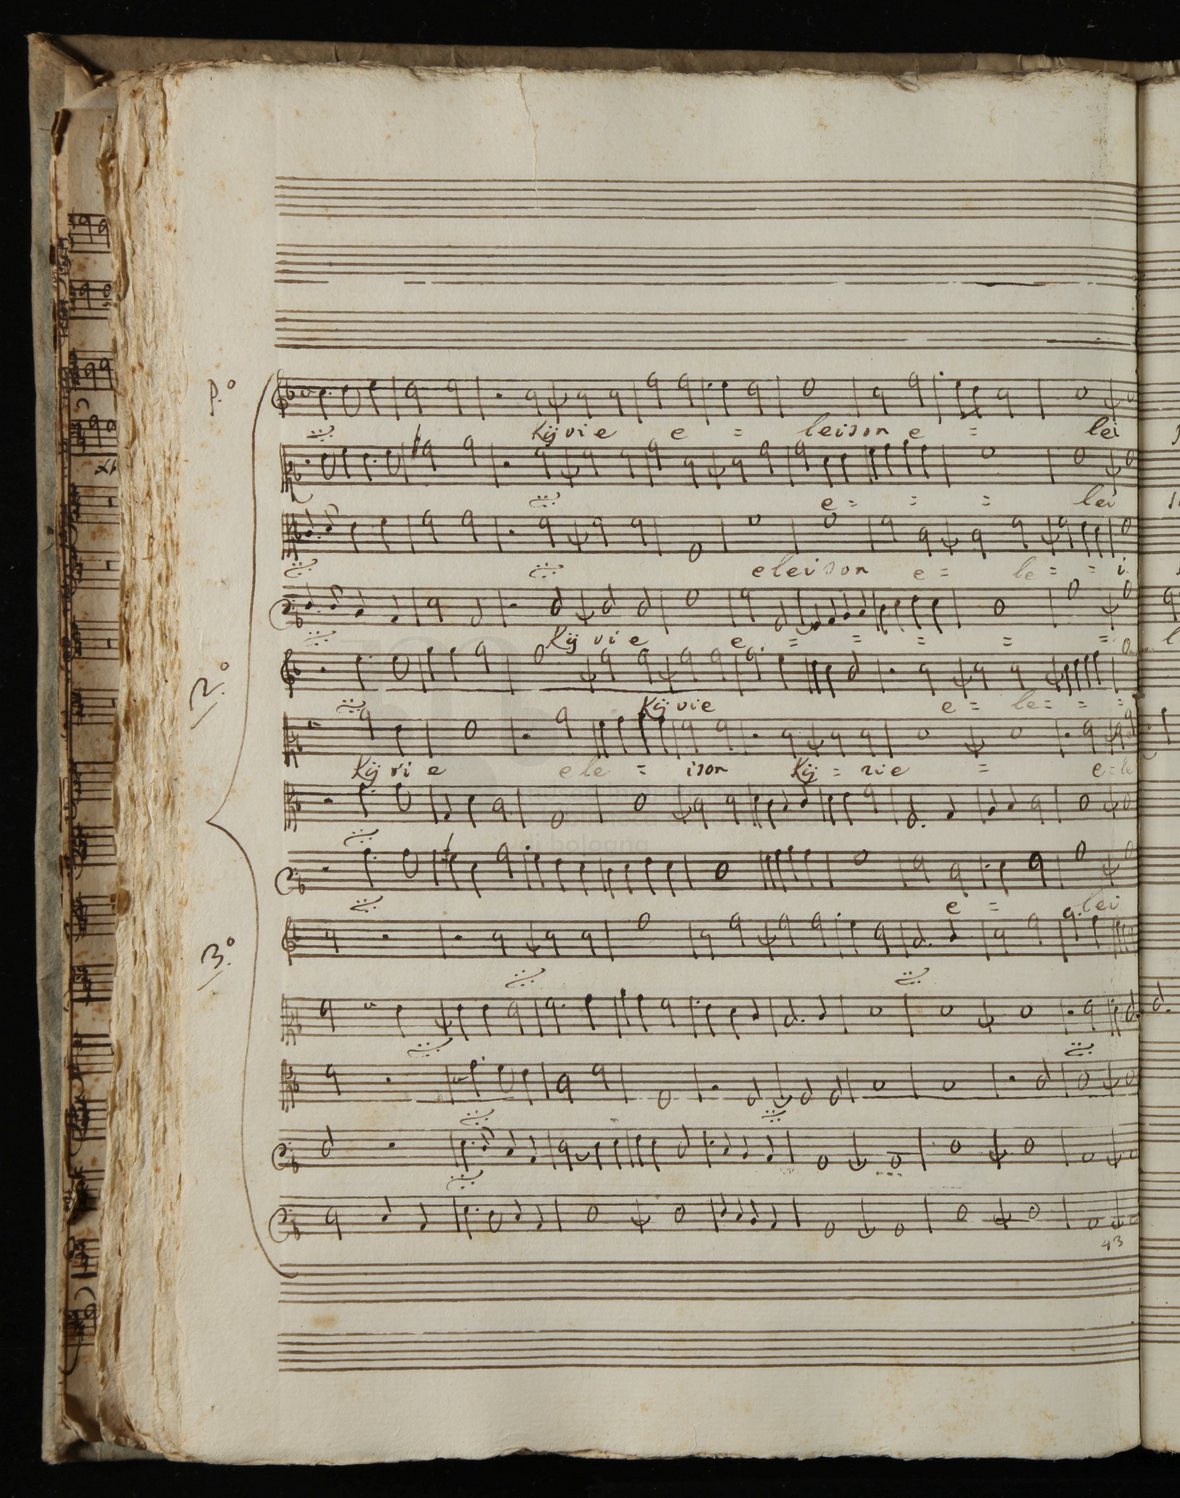 P.º
Kÿrie e = leison e = lei
e = = = lei
eleison e = le = = i
Kÿrie e = = = = =
2.º
Kÿrie e = le = = =
Kÿrie ele = ison Kÿ = rie = e = le
e = lei
3.º
43